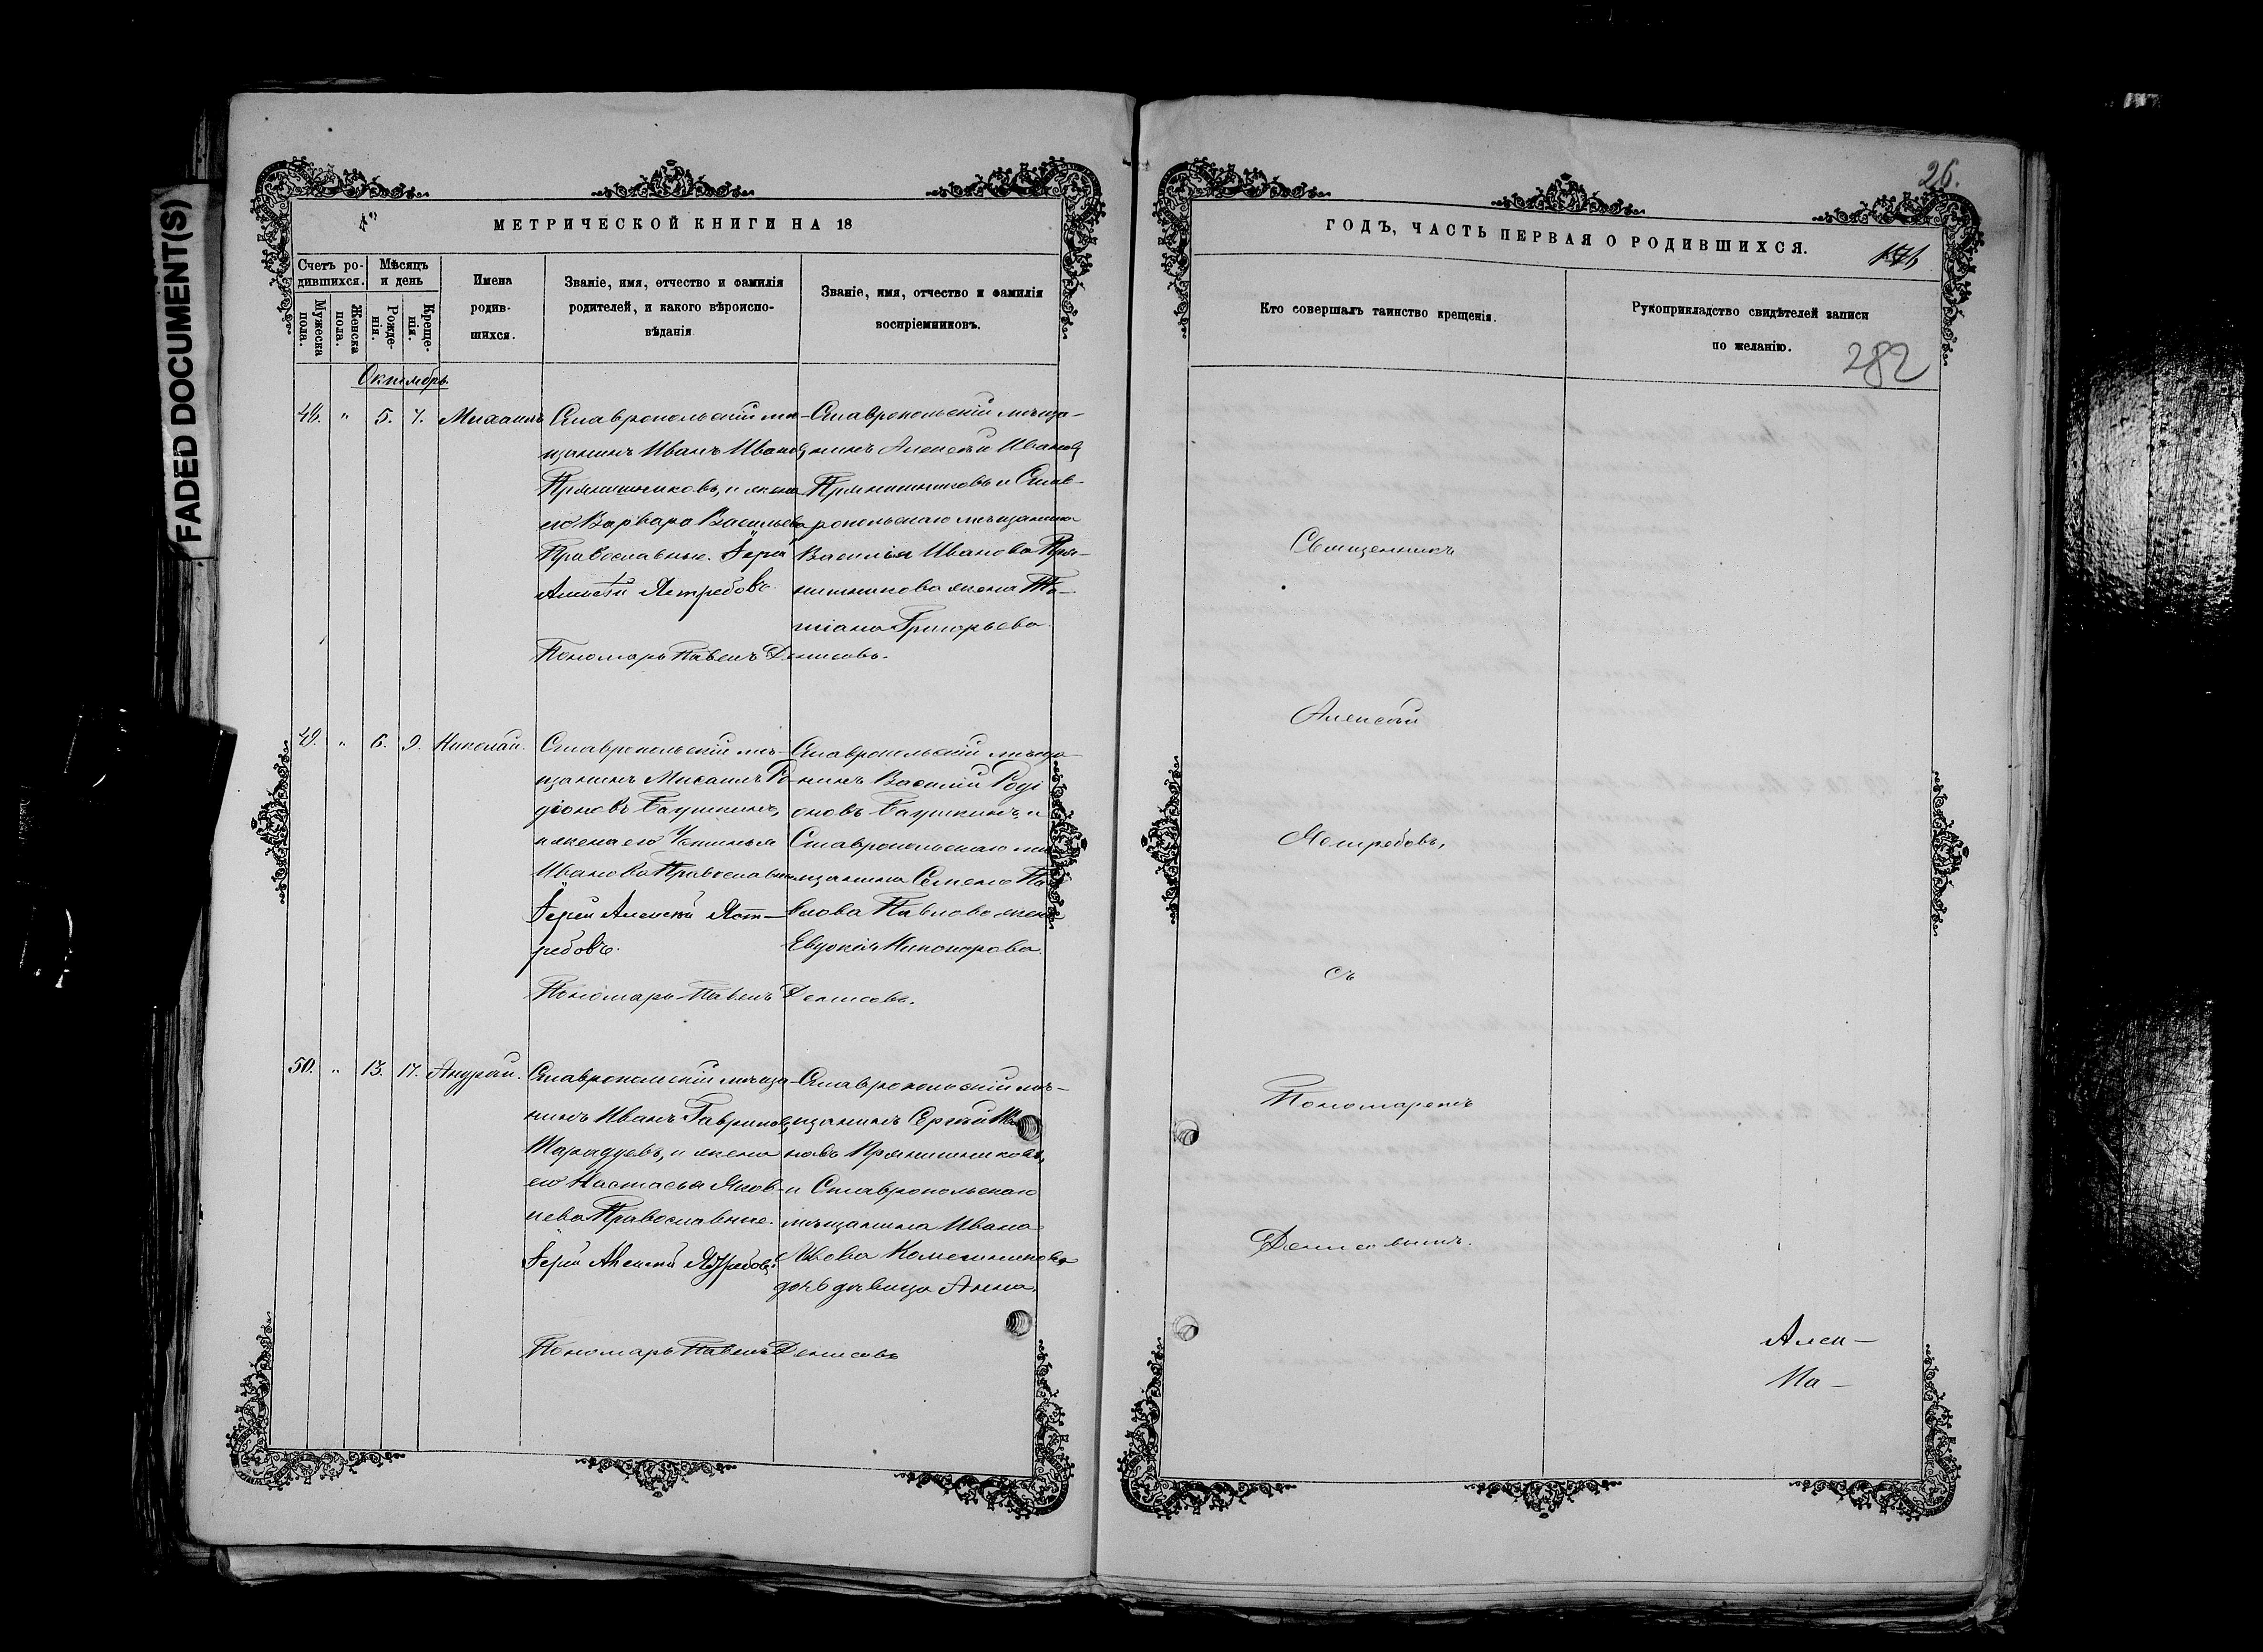 FADED DOCUMENT(S)
МЕТРИЧЕСКОЙ КНИГИ НА 18
Счетъ родившихся.
Мужеска пола.
Женска пола.
Мѣсяцъ и день
Рожденія.
Крещенія.
Имена родив-
шихся.
Званіе, имя, отчество и фамилія
родителей, и какого вѣроиспо-
вѣданія
Званіе, имя, отчество и фамилія
воспріемниковъ.
Октябрь
48. " 5. 7. Михаилъ
Ставропольскій мѣ-
щанинъ Иванъ Ивановъ
Прянишниковъ, и жена
его Варвара Васильева
Православные. Іерей
Алексѣй Ястребовъ.
Ставропольскій мѣща-
нинъ Алексѣй Ивановъ
Прянишниковъ и Став-
ропольскаго мѣщанина
Василія Иванова Пря-
нишникова жена Та-
тіана Григорьева.
Пономарь Павелъ Денисовъ.
49. " 6. 9. Николай.
Ставропольскій мѣ-
щанинъ Михаилъ Ро-
діоновъ Баушкинъ,
и жена его Устинья
Иванова Православные
Іерей Алексѣй Яст-
ребовъ.
Ставропольскій мѣща-
нинъ Василій Роді
оновъ Баушкинъ, и
Ставропольскаго мѣ
щанина Семена Па
влова Павлова жена
Евдокія Никонорова.
Пономарь Павелъ Денисовъ.
50. " 13. 17. Андрей.
Ставропольскій мѣща-
нинъ Иванъ Гавриловъ
и жена
его Настасья Яков-
лева Православные.
Іерей Алексѣй Ястребовъ
Ставропольскій мѣ-
щанинъ Сергѣй
новъ Прянишниковъ,
и Ставропольскаго
мѣщанина Ивана
дочь дѣвица Анна.
Пономарь Павелъ Денисовъ
26.
ГОДЪ, ЧАСТЬ ПЕРВАЯ О РОДИВШИХСЯ.
Кто совершалъ таинство крещенія.
Рукоприкладство свидѣтелей записи
по желанію.
282
Священникъ
Алексѣй
Ястребовъ,
съ
Пономаремъ
Денисовымъ.
Алек-
На-